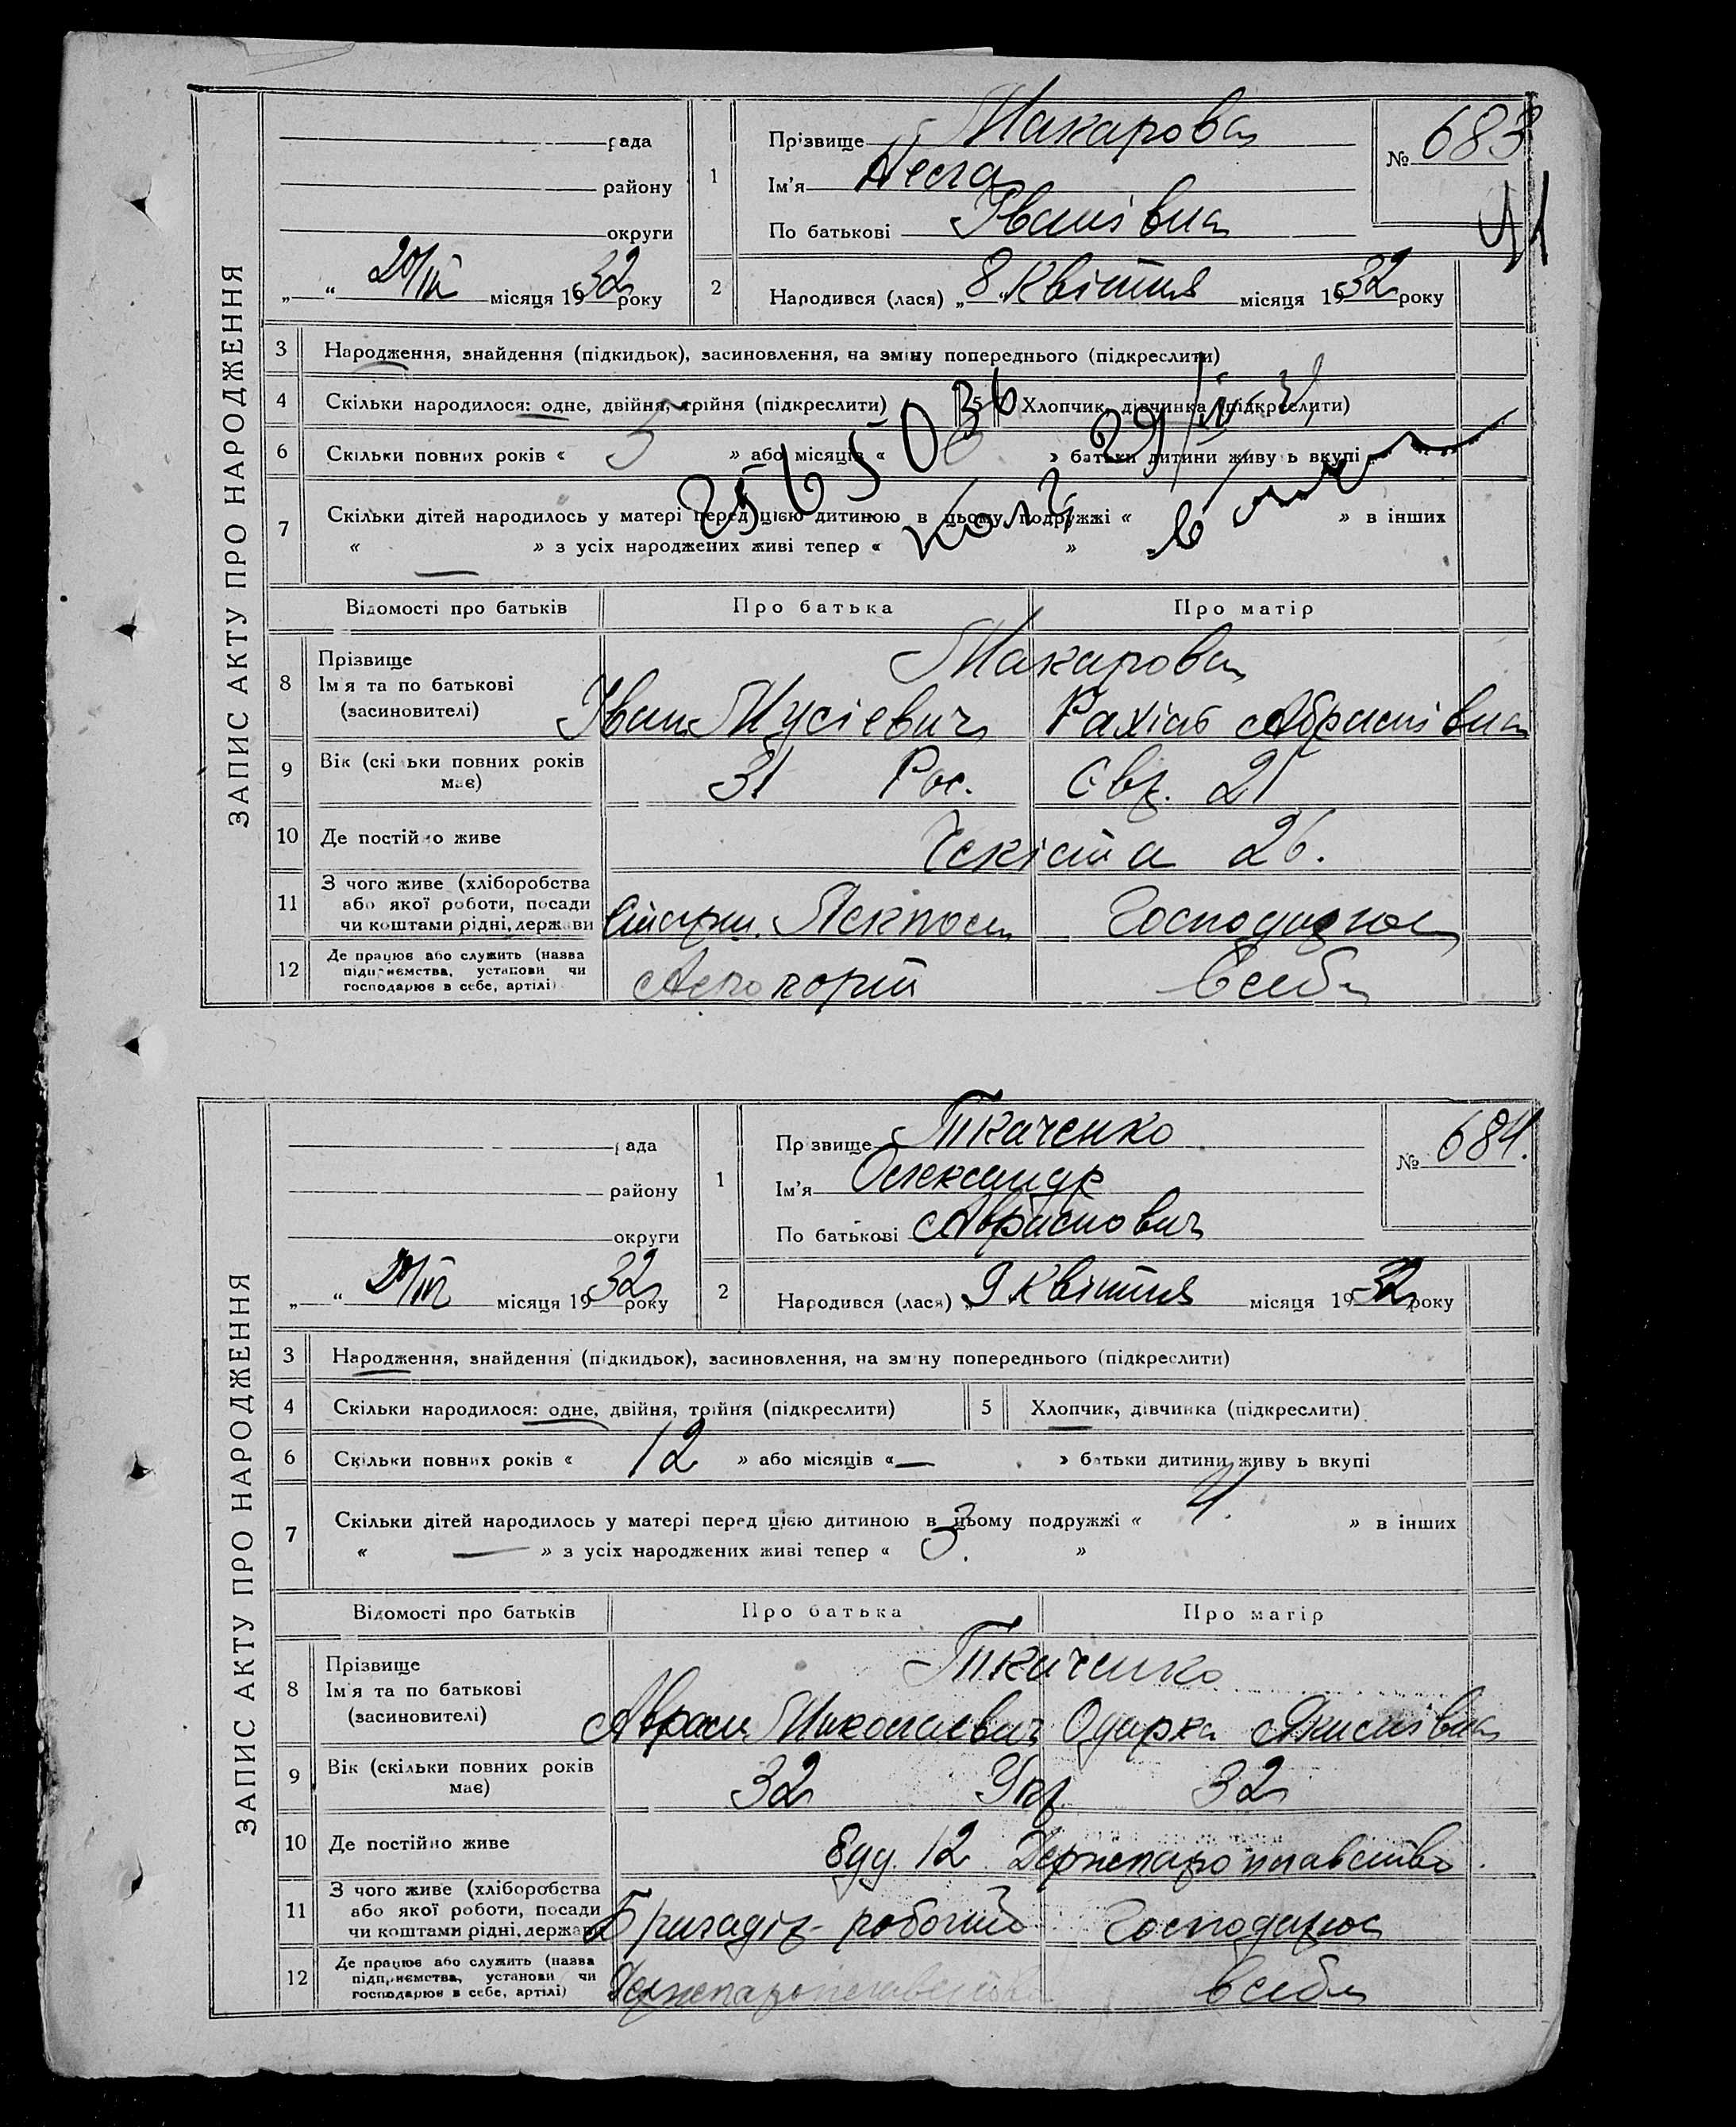 ЗАПИС АКТУ ПРО НАРОДЖЕННЯ
рада
району
округи
20/IV місяця 1932 року
1
Прізвище Макарова
Ім'я
По батькові Іванівна
№ 683
41
2
Народився (лася) „8 квітня місяця 1932 року
3 Народження, знайдення (підкидьок), засиновлення, на зміну попереднього (підкреслити)
4 Скільки народилося: одне, двійня, трійня (підкреслити)
5 Хлопчик, дівчинка (підкреслити)
6 Скільки повних років « 3 » або місяців « » батьки дитини живуть вкупі
7 Скільки дітей народилось у матері перед цією дитиною в цьому подружжі « » в інших
« — » з усіх народжених живі тепер « »
Відомості про батьків Про батька Про матір
8 Прізвище
Ім'я та по батькові
(засиновителі)
Макарова
Іван Мусієвич Рахіль Абрамівна
9 Вік (скільки повних років
має)
31 Рос. Євр. 21
10 Де постійно живе Чекіста 26.
11 З чого живе (хліборобства
або якої роботи, посади
чи коштами рідні, держави
Господарює
12 Де працює або служить (назва
підприємства, установи чи
господарює в себе, артілі)
Аеропорт В себе
ЗАПИС АКТУ ПРО НАРОДЖЕННЯ
рада
району
округи
20/IV місяця 1932 року
1
Прізвище Ткаченко
Ім'я Олександр
По батькові Аврамович
№ 684.
2
Народився (лася) „9 квітня місяця 1932 року
3 Народження, знайдення (підкидьок), засиновлення, на зміну попереднього (підкреслити)
4 Скільки народилося: одне, двійня, трійня (підкреслити)
5 Хлопчик, дівчинка (підкреслити)
6 Скільки повних років « 12 » або місяців « — » батьки дитини живуть вкупі
7 Скільки дітей народилось у матері перед цією дитиною в цьому подружжі « 4. » в інших
« — » з усіх народжених живі тепер « 3. »
Відомості про батьків Про батька Про матір
8 Прізвище
Ім'я та по батькові
(засиновителі)
Ткаченко
Аврам Миколаевич Одарка Якимівна
9 Вік (скільки повних років
має)
32 Укр. 32
10 Де постійно живе 12 Держпароплавство.
11 З чого живе (хліборобства
або якої роботи, посади
чи коштами рідні, держави
Бригадір-робочий Господарює
12 Де працює або служить (назва
підприємства, установи чи
господарює в себе, артілі)
Держпароплавство В себе